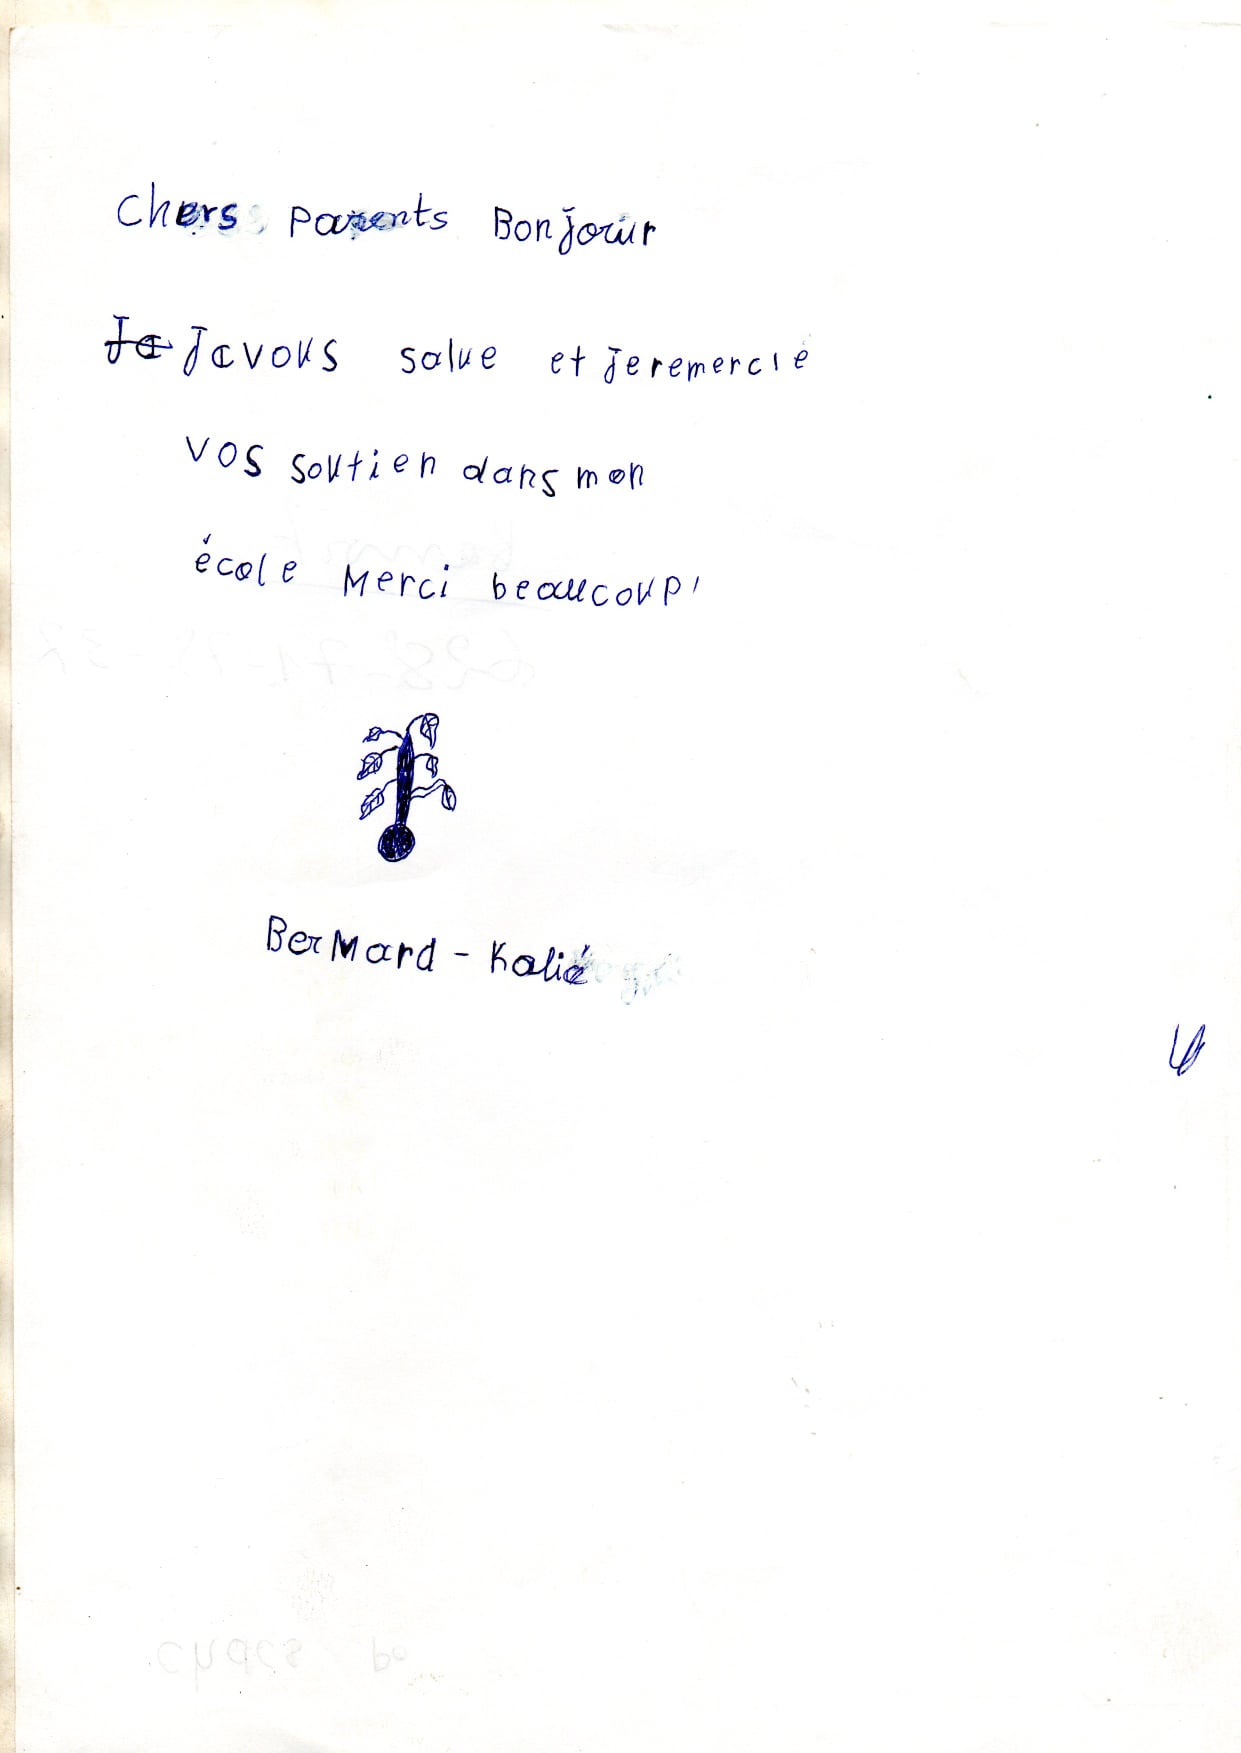 Chers Parents Bonjour
Je Je vous salue et je remercie
vos soutien dans mon
école Merci beaucoup!
BerMard - Kalié